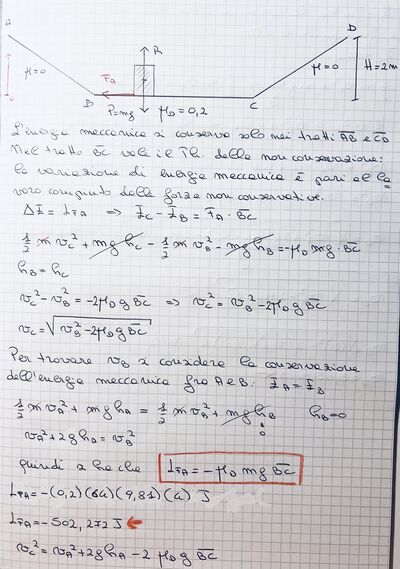 A
D
μ=0
R
FA
μ=0
H=2m
B
P=mg
μD=0,2
C
L'energia meccanica si conserva solo nei tratti AB e CD
Nel tratto BC vale il Th. della non conservazione:
la variazione di energia meccanica è pari al la
voro compiuto dalle forze non conservative.
ΔE = LFA ⇒ EC - EB = FA · BC
1/2 m vC² + mghC - 1/2 m vB² - mghB = -μD mg · BC
hB = hC
vC² - vB² = -2μD g BC ⇒ vC² = vB² - 2μD g BC
vC = √(vB² - 2μD g BC)
Per trovare vB si considera la conservazione
dell'energia meccanica fra A e B: EA = EB
1/2 m vA² + mghA = 1/2 m vB² + mghB hB=0
0
vA² + 2ghA = vB²
quindi si ha che LFA = -μD mg BC
LFA = -(0,2)(64)(9,81)(4) J
LFA = -502,272 J
vC² = vA² + 2ghA - 2 μD g BC